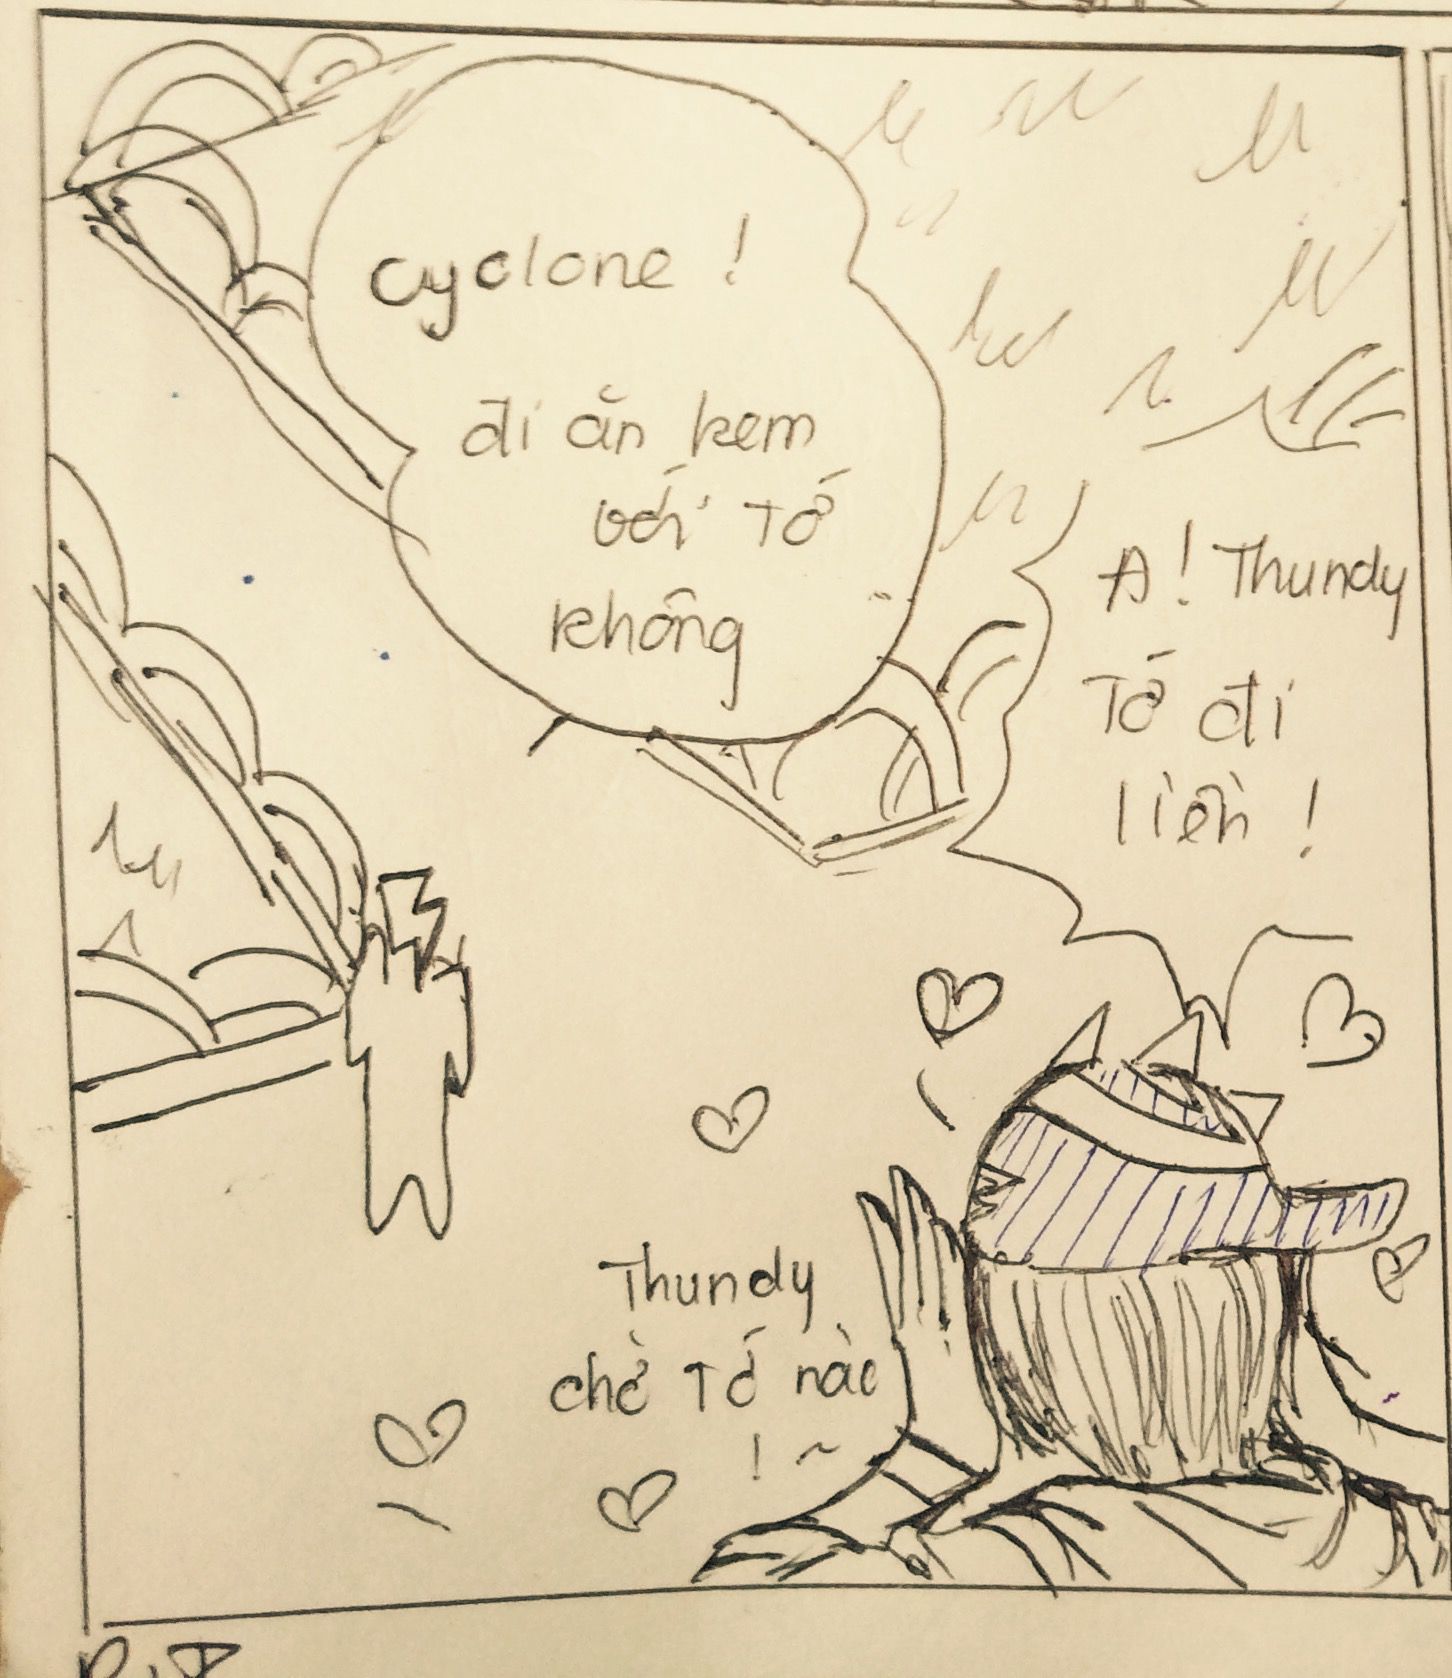 cyclone !
đi ăn kem
với tớ
không
A! Thundy
Tớ đi
liền !
Thundy
chờ tớ nào
! ~